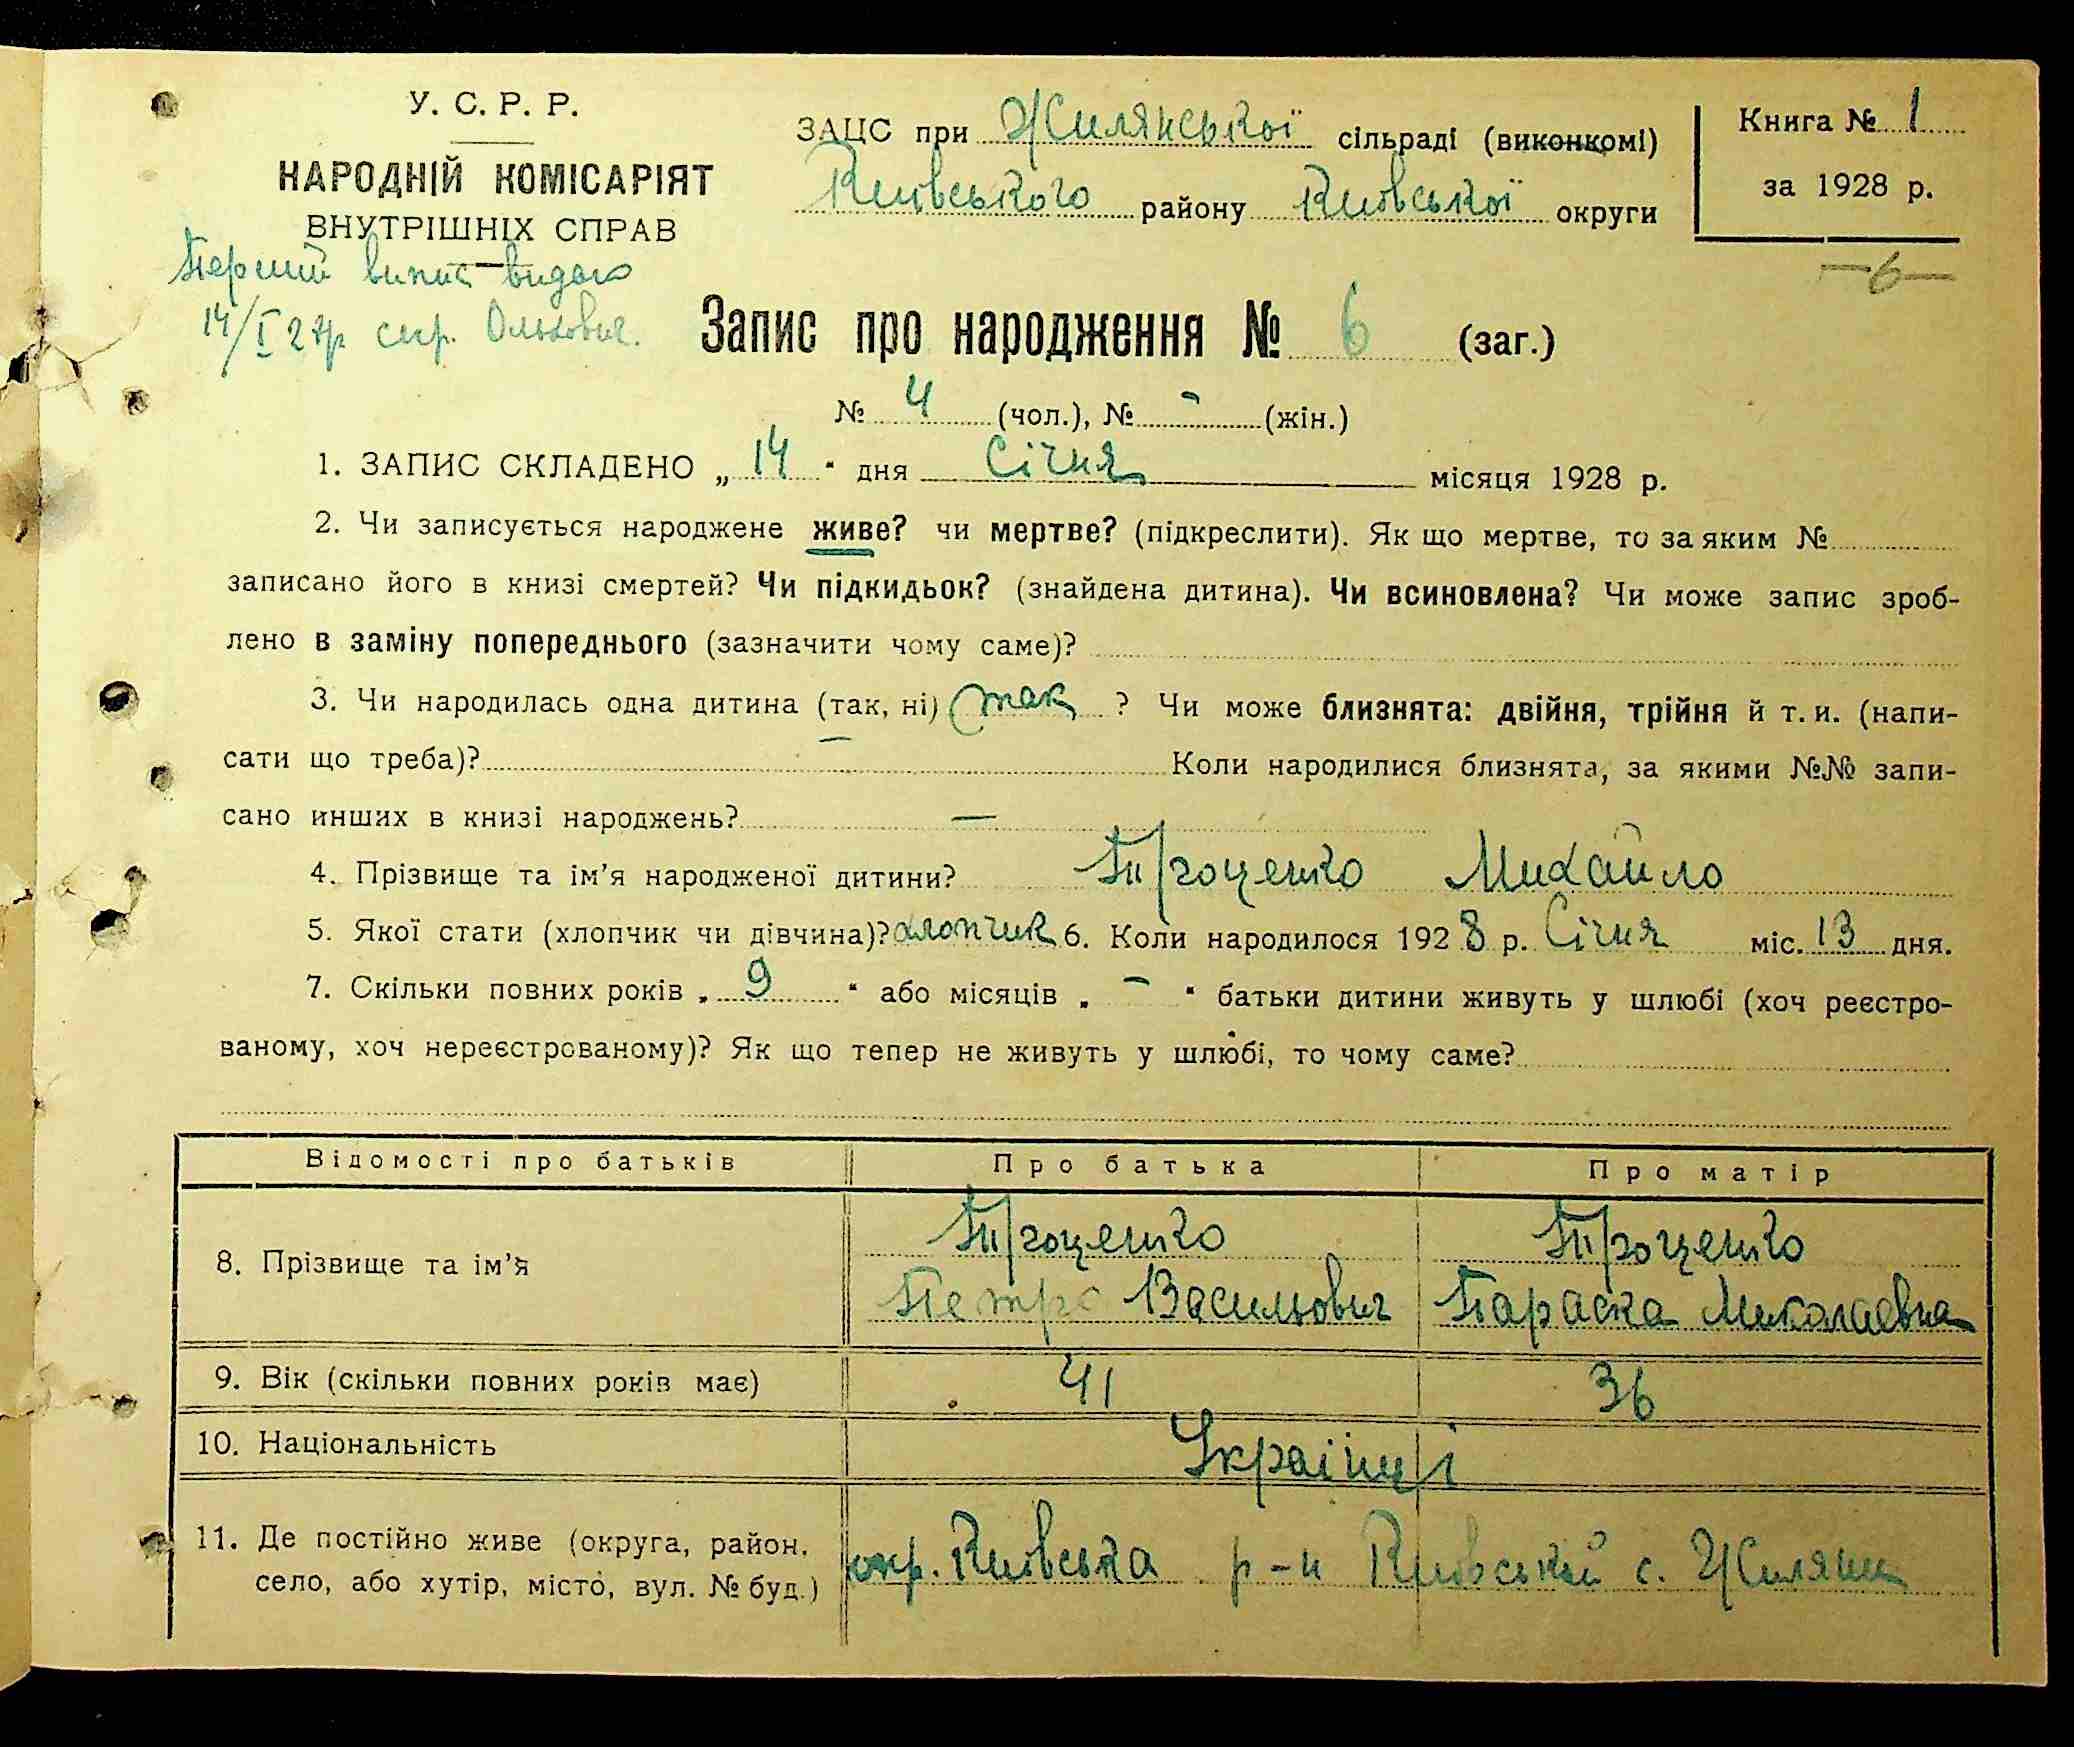 У. С. Р. Р.
НАРОДНІЙ КОМІСАРІЯТ
ВНУТРІШНІХ СПРАВ
Перший випис видано
14/I 28р секр.
ЗАЦС при Жилянської сільраді (виконкомі)
Київського району Київської округи
Книга № 1
за 1928 р.
—6—
Запис про народження № 6 (заг.)
№ 4 (чол.), № - (жін.)
1. ЗАПИС СКЛАДЕНО „ 14 “ дня Січня місяця 1928 р.
2. Чи записується народжене живе? чи мертве? (підкреслити). Як що мертве, то за яким №
записано його в книзі смертей? Чи підкидьок? (знайдена дитина). Чи всиновлена? Чи може запис зроб-
лено в заміну попереднього (зазначити чому саме)?
3. Чи народилась одна дитина (так, ні) так ? Чи може близнята: двійня, трійня й т. и. (напи-
сати що треба)? — Коли народилися близнята, за якими №№ запи-
сано инших в книзі народжень? —
4. Прізвище та ім’я народженої дитини? Проценко Михайло
5. Якої стати (хлопчик чи дівчина)? хлопчик 6. Коли народилося 1928 р. Січня міс. 13 дня.
7. Скільки повних років „ 9 “ або місяців „ - “ батьки дитини живуть у шлюбі (хоч реєстро-
ваному, хоч нереєстрованому)? Як що тепер не живуть у шлюбі, то чому саме?
Відомості про батьків Про батька Про матір
8. Прізвище та ім’я Проценко Проценко
Петро Васильович Параска Миколаєвна
9. Вік (скільки повних років має) 41 36
10. Національність Українці
11. Де постійно живе (округа, район, село, або хутір, місто, вул. № буд.) окр. Київська р-н Київський с. Жиляни